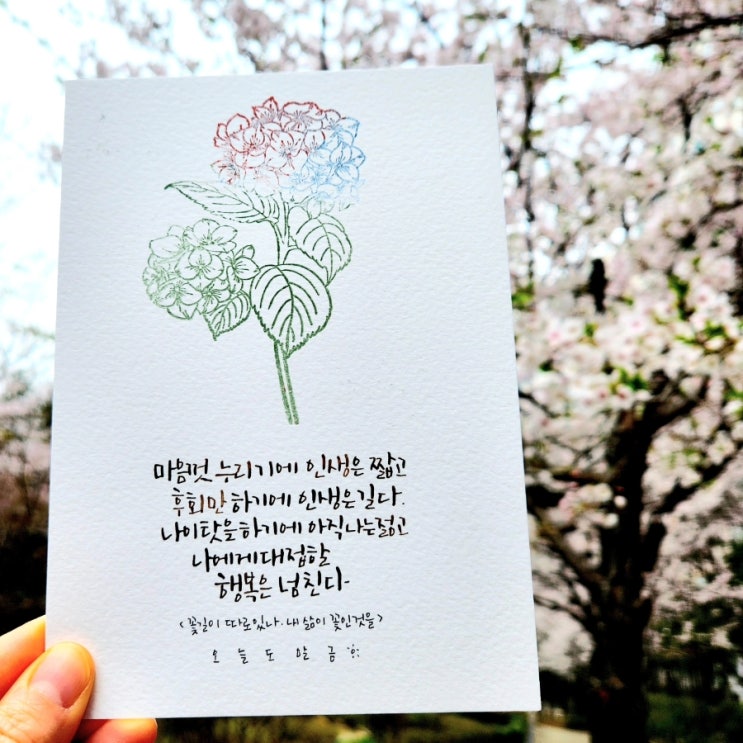 마음껏 누리기에 인생은 짧고
후회만 하기에 인생은 길다.
나이탓을하기에 아직나는젊고
나에게대접할
행복은 넘친다
<꽃길이 따로있나. 내 삶이 꽃인것을>
오늘도 맑금